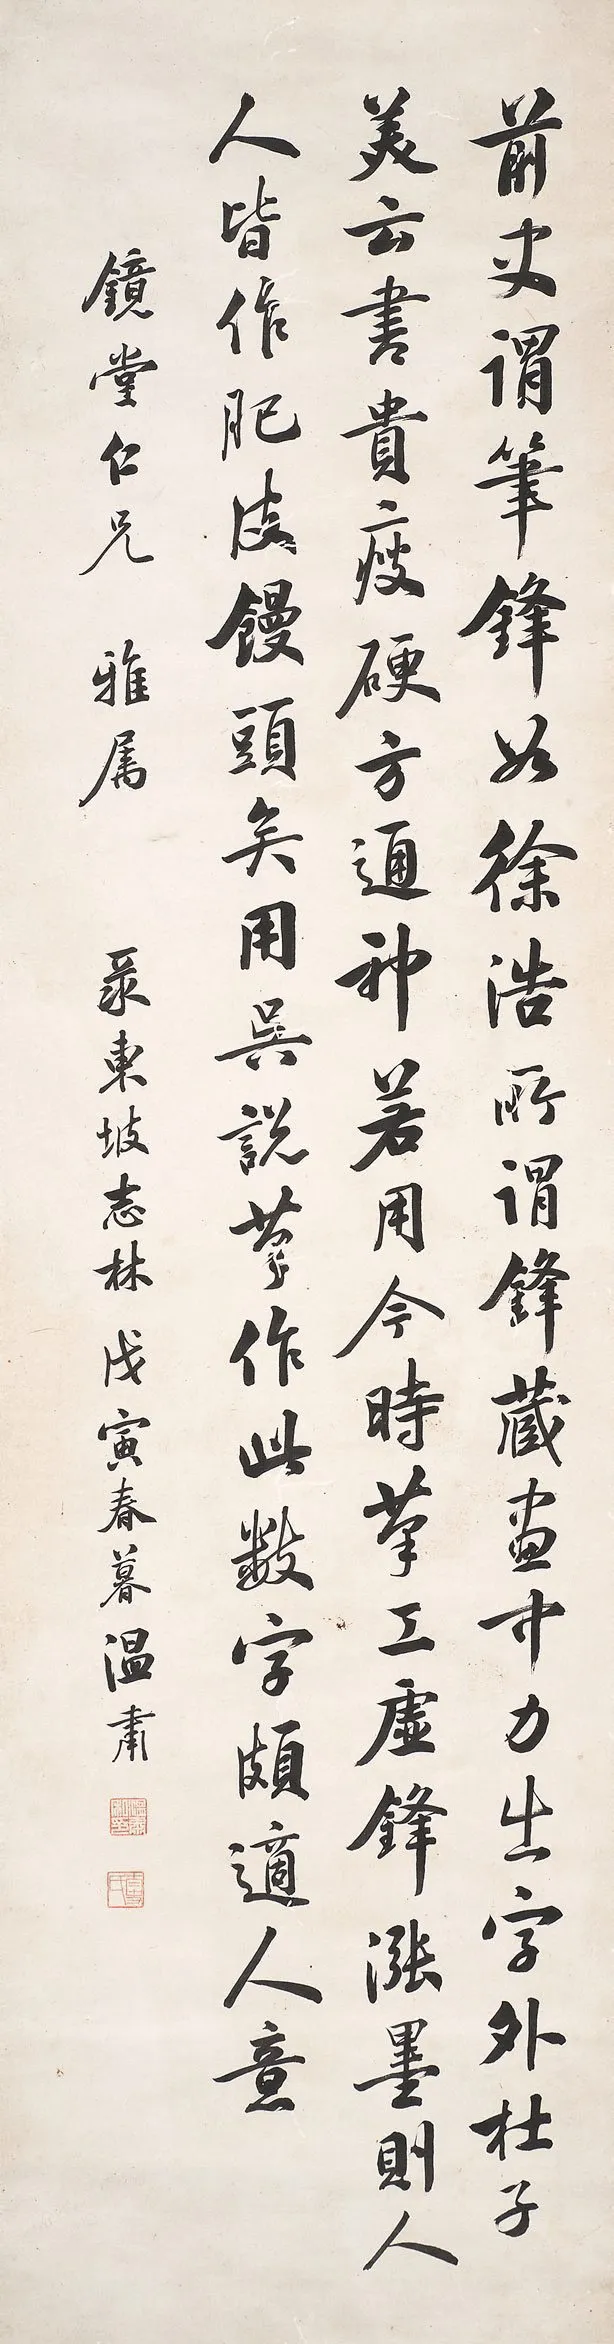 前史谓筆鋒如徐浩所谓鋒蔵畫中力出字外杜子
美云書貴瘦硬方通神若用今時筆工虛鋒漲墨則人
人皆作肥皮饅頭矣用吳説筆作此数字頗適人意
鏡堂仁兄 雅属 录東坡志林 戊寅春暮温肅